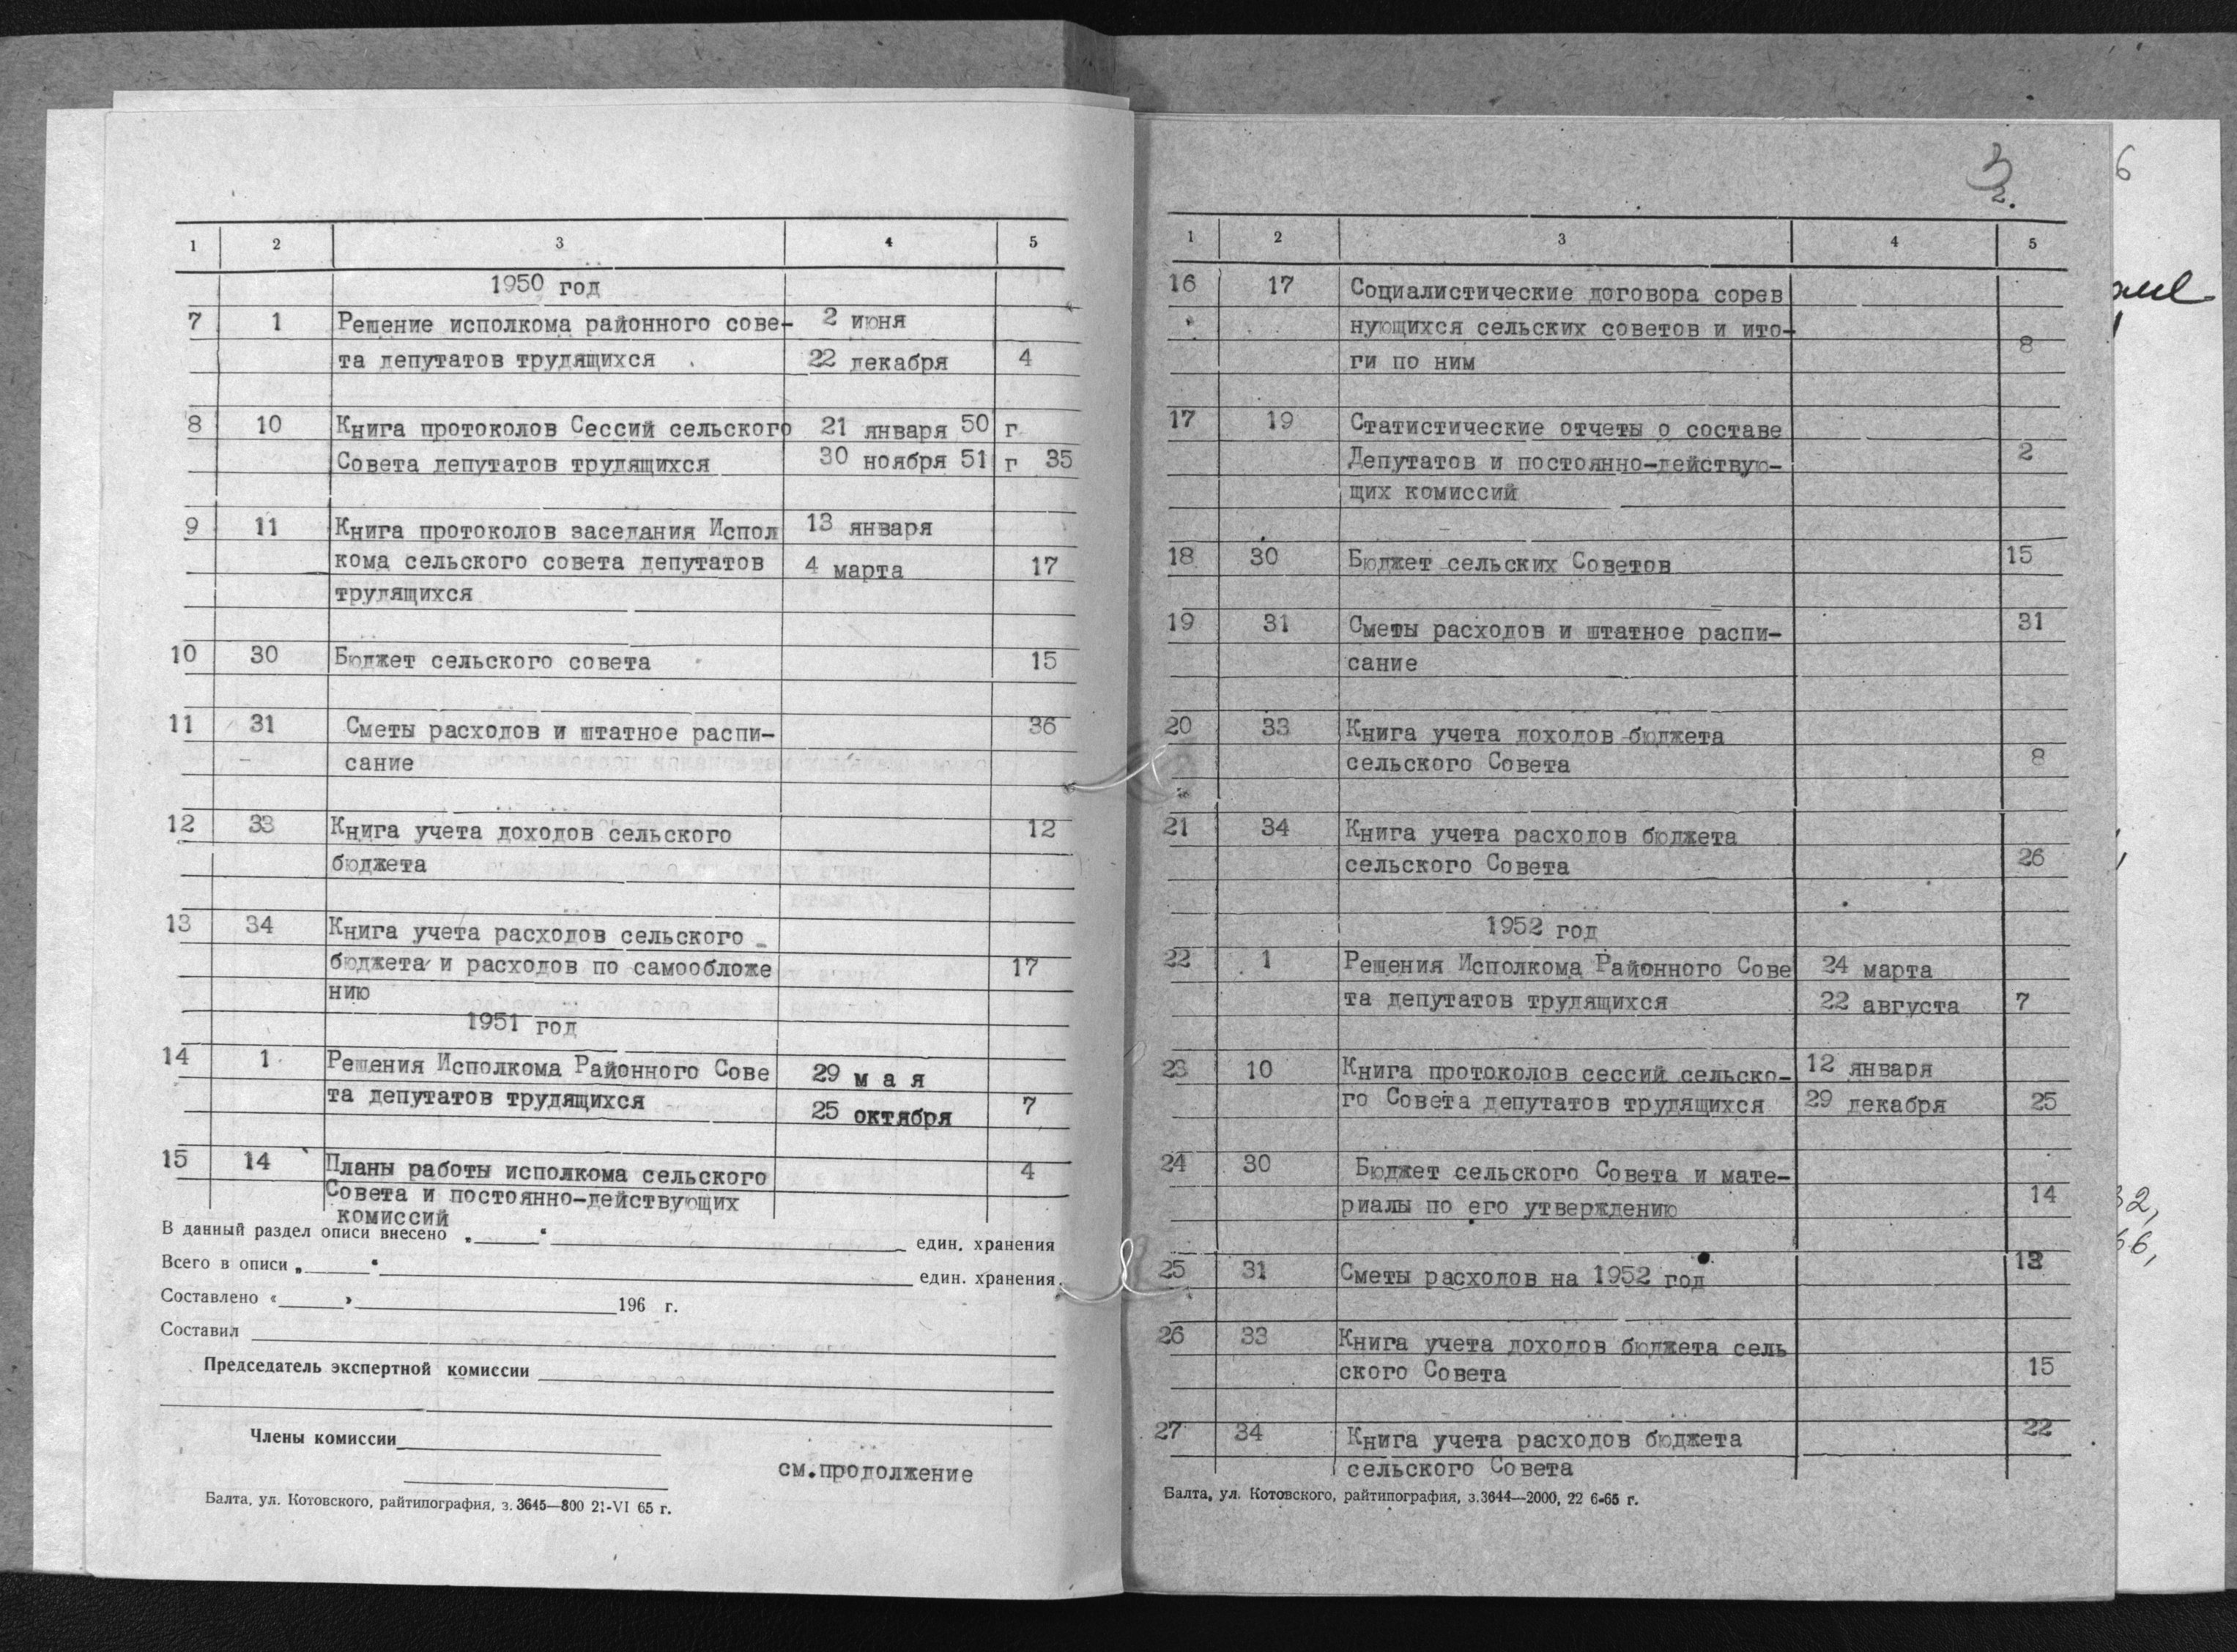 1 2 3 4 5
1950 год
7 1 Решение исполкома районного сове- 2 июня
та депутатов трудящихся 22 декабря 4
8 10 Книга протоколов Сессий сельского 21 января 50 г
Совета депутатов трудящихся 30 ноября 51 г 35
9 11 Книга протоколов заседания Испол 13 января
кома сельского совета депутатов 4 марта 17
трудящихся
10 30 Бюджет сельского совета 15
11 31 Сметы расходов и штатное распи- 36
сание
12 33 Книга учета доходов сельского 12
бюджета
13 34 Книга учета расходов сельского
бюджета и расходов по самообложе 17
нию
1951 год
14 1 Решения Исполкома Районного Сове 29 м а я
та депутатов трудящихся 25 октября 7
15 14 Планы работы исполкома сельского 4
Совета и постоянно-действующих
комиссий
В данный раздел описи внесено „ “ един. хранения
Всего в описи „ “ един. хранения.
Составлено « » 196 г.
Составил
Председатель экспертной комиссии
Члены комиссии
см.продолжение
Балта, ул. Котовского, райтипография, з. 3645—800 21-VI 65 г.
3
2.
1 2 3 4 5
16 17 Социалистические договора сорев
нующихся сельских советов и ито-
ги по ним 8
17 19 Статистические отчеты о составе
Депутатов и постоянно-действую- 2
щих комиссий
18 30 Бюджет сельских Советов 15
19 31 Сметы расходов и штатное распи- 31
сание
20 33 Книга учета доходов бюджета
сельского Совета 8
21 34 Книга учета расходов бюджета
сельского Совета 26
1952 год
22 1 Решения Исполкома Районного Сове 24 марта
та депутатов трудящихся 22 августа 7
23 10 Книга протоколов сессий сельско- 12 января
го Совета депутатов трудящихся 29 декабря 25
24 30 Бюджет сельского Совета и мате-
риалы по его утверждению 14
25 31 Сметы расходов на 1952 год
26 33 Книга учета доходов бюджета сель
ского Совета 15
27 34 Книга учета расходов бюджета 22
сельского Совета
Балта, ул. Котовского, райтипография, з.3644—2000, 22 6-65 г.